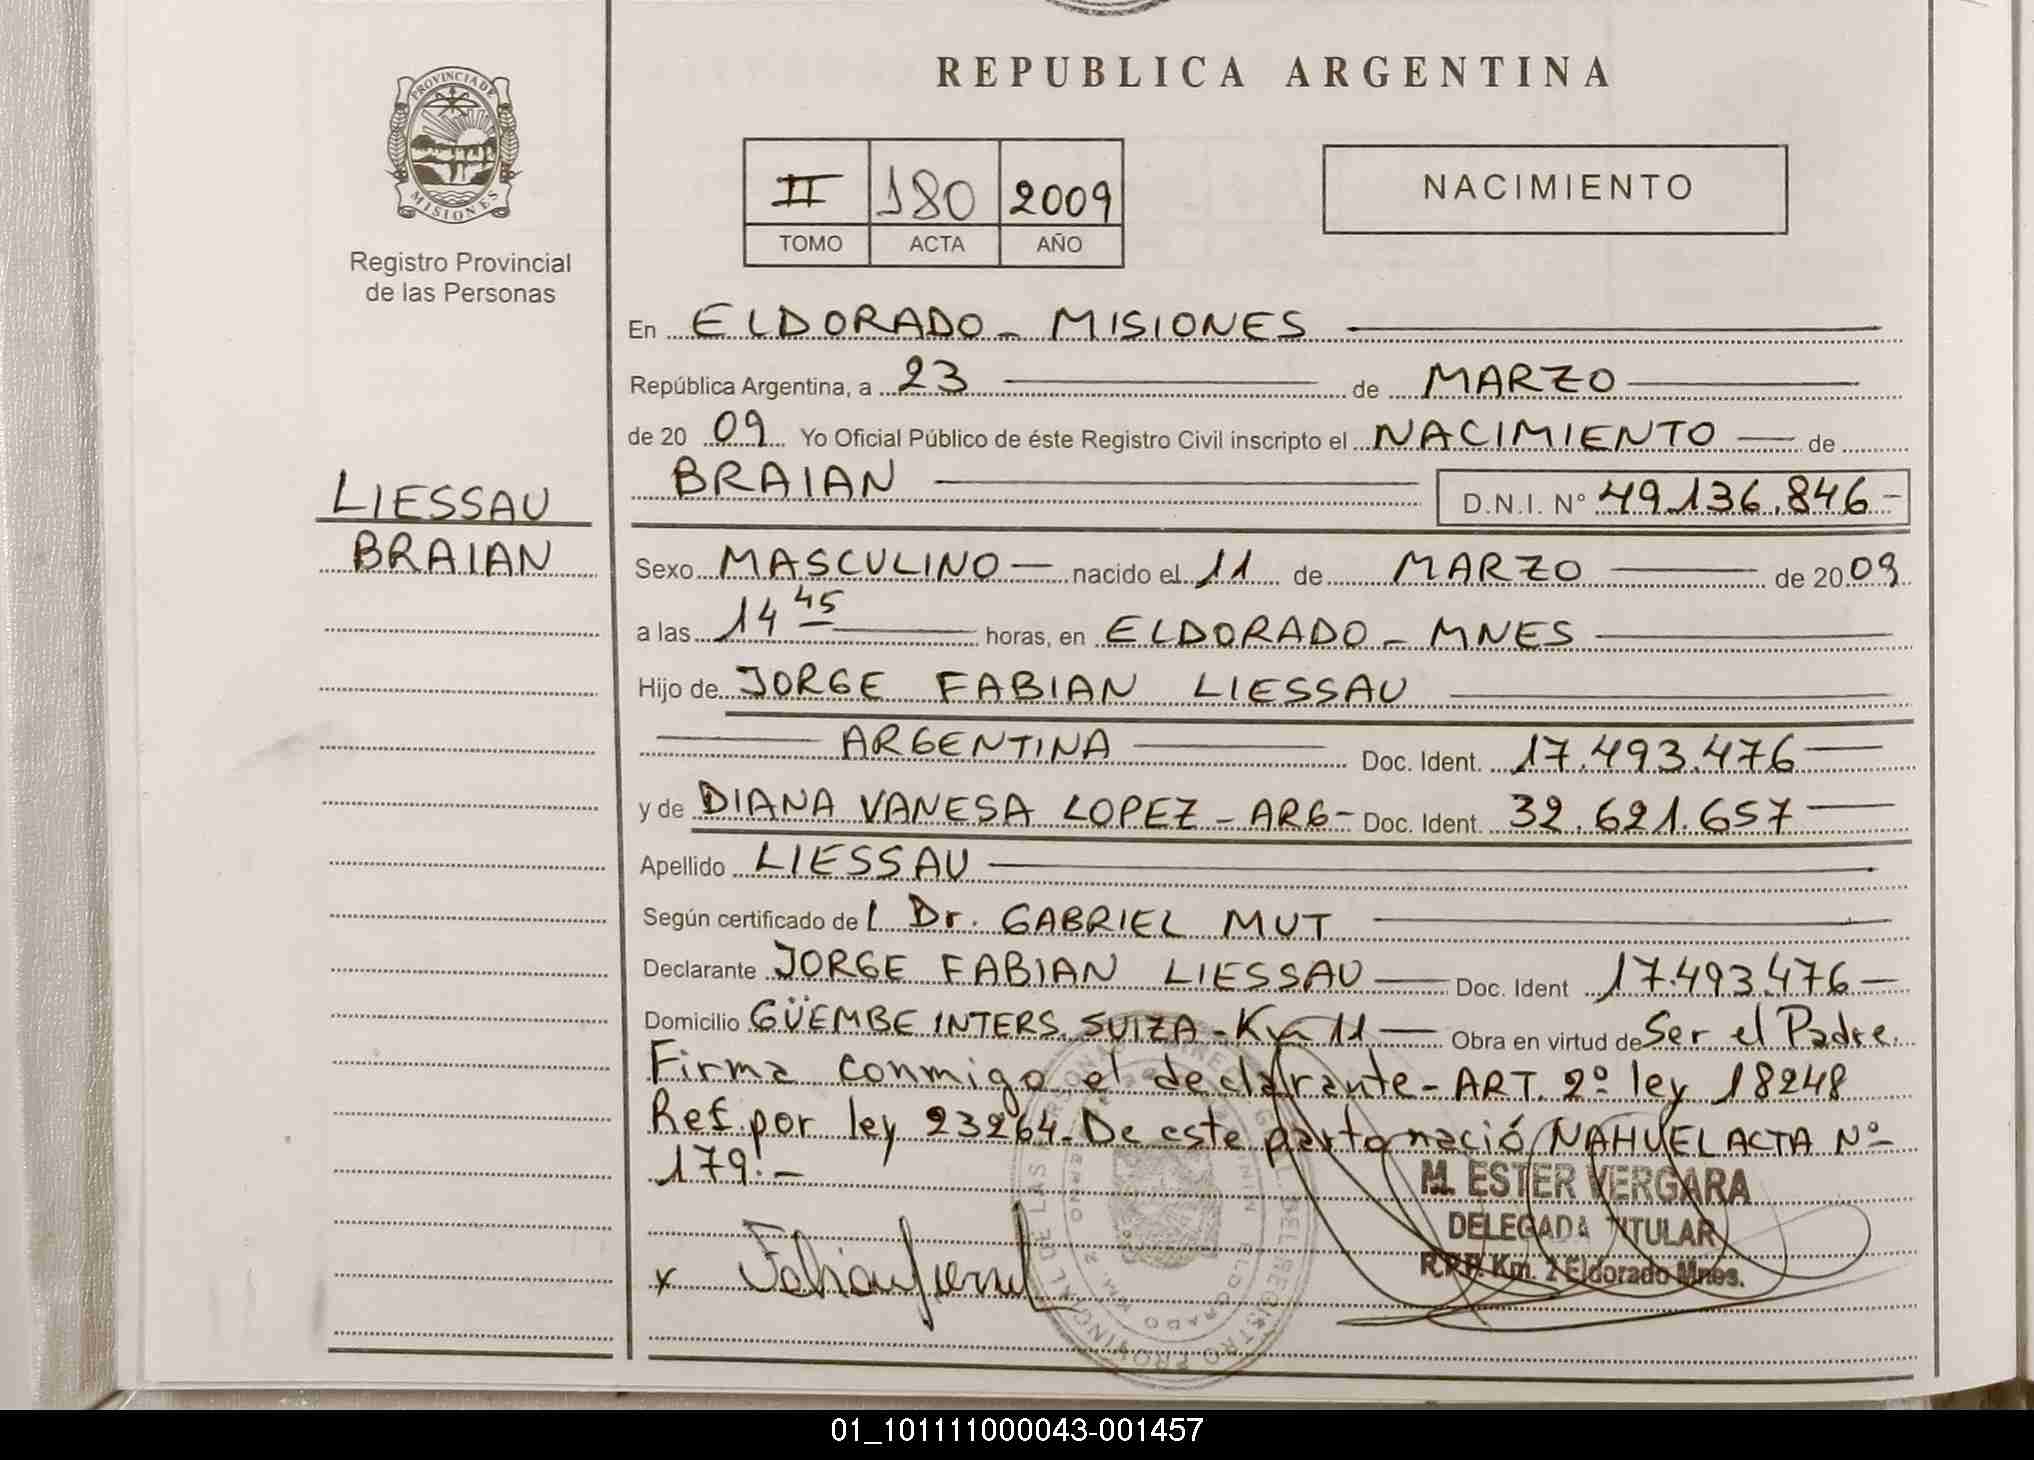 REPUBLICA ARGENTINA
PROVINCIA DE MISIONES
Registro Provincial
de las Personas
II 180 2009
TOMO ACTA AÑO
NACIMIENTO
En ELDORADO - MISIONES
República Argentina, a 23 de MARZO
de 2009 Yo Oficial Público de éste Registro Civil inscripto el NACIMIENTO de
BRAIAN D.N.I. N° 49.136.846-
LIESSAU
BRAIAN
Sexo MASCULINO nacido el 11 de MARZO de 2009
a las 14 45 horas, en ELDORADO - MNES
Hijo de JORGE FABIAN LIESSAU
ARGENTINA Doc. Ident. 17.493.476
y de DIANA VANESA LOPEZ - ARG- Doc. Ident. 32.621.657
Apellido LIESSAU
Según certificado de l Dr. GABRIEL MUT
Declarante JORGE FABIAN LIESSAU Doc. Ident 17.493.476
Domicilio GÜEMBE INTERS. SUIZA - Km 11 Obra en virtud de Ser el Padre.
Firma conmigo el declarante - ART. 2º ley 18248
Ref. por ley 23264. De este parto nació NAHUEL ACTA Nº
179!-
M. ESTER VERGARA
DELEGADA TITULAR
R.P.P. Km. 2 Eldorado Mnes.
x
01_101111000043-001457